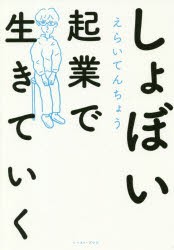 しょぼい
起業で
生きていく
えらいてんちょう